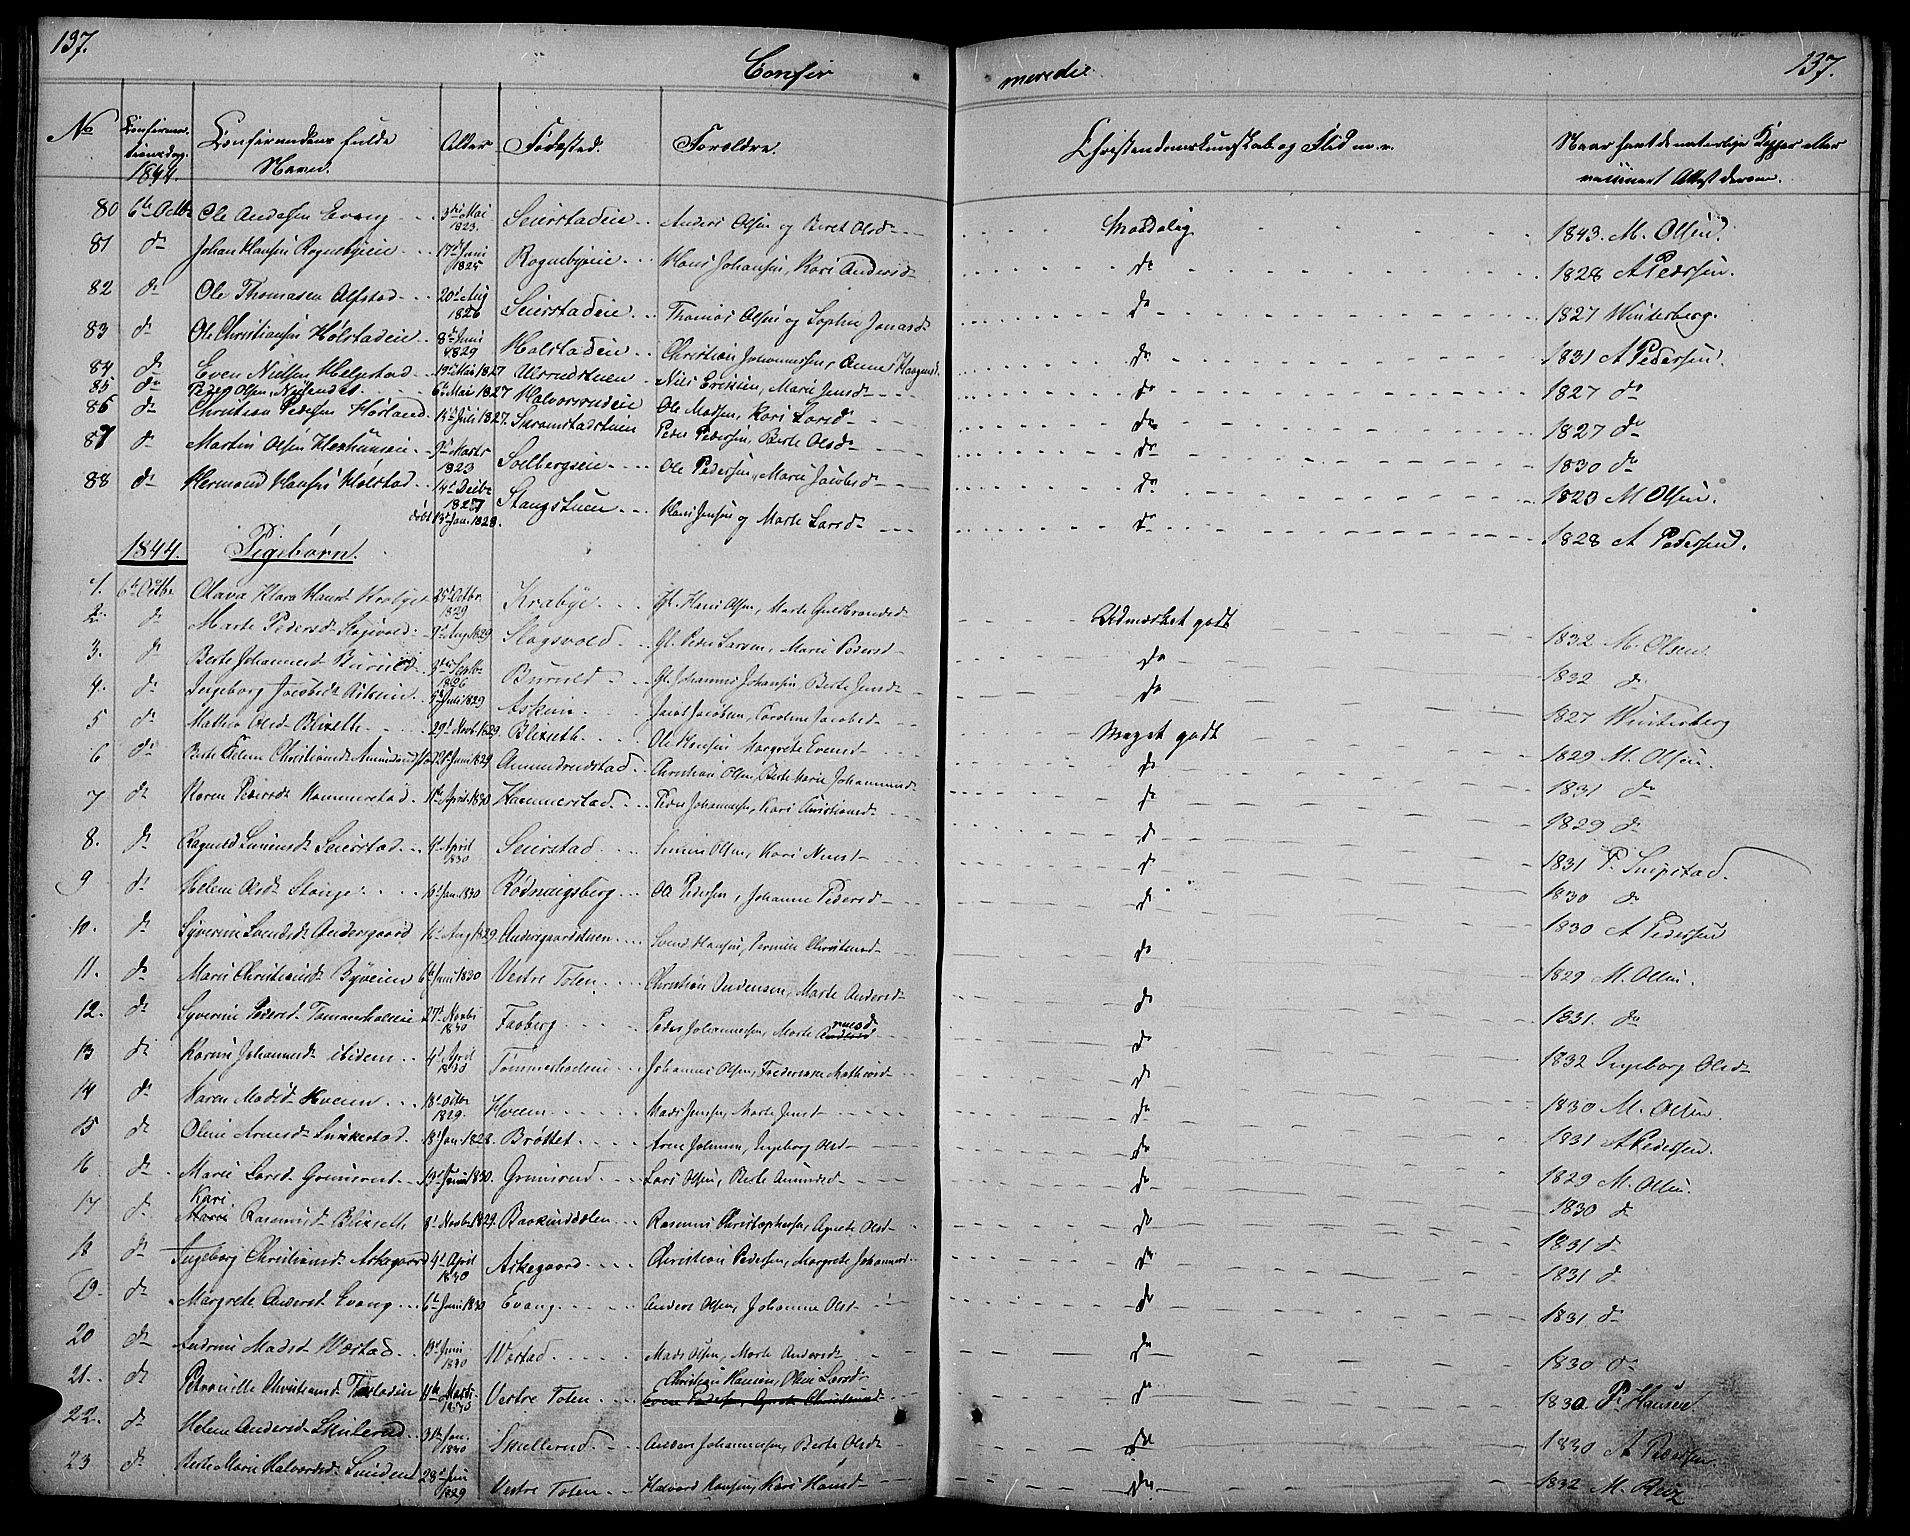 137.
137.
Confir
merede
No
Confirma-
tionsdag.
1844.
Confirmandens fulde
Navn.
Alder
Fødested.
Forældre.
Christendomskundskab og Flid m. v.
Naar havt de naturlige Kopper eller
vaccineret Attest derom.
80 6te Octbr Ole Andersen Evang 3die Mai 1823. Seierstadeie Anders Olsen og Beret Olsd Maadelig 1843. M. Olsen.
81 do Johan Hansen Rognebyeie 17d Juni 1825 Rognebyeie Hans Johansen, Kari Andersd do 1828 A Pedersen.
82 do Ole Thomasen Alfstad 20d Aug 1826 Seierstadeie Thomas Olsen og Sophie Jonasd do 1827 Winterberg.
83 do Ole Christiansen Holstadeie 8d Juni 1829 Holstadeie Christian Johannessen, Anne Haagensd do 1831 A Pedersen
84 do Even Nielsen Helgestad 19d Mai 1827 Ulsrudstuen Niels Erichsen, Marie Jensd do 1827 do
85 do Peder Olsen Nøisendet 6te Mai 1827 Halvorsrudeie Ole Matsen, Kari Larsd do 1827 do
86 do Christian Pedersen Horland 14d Juli 1827. Skramstadstuen Peder Pedersen, Berte Olsd do 1830 do
87 do Martin Olsen 9d Marts 1823 Solbergseie Ole Pedersen, Marie Jacobsd do 1823 M Olsen.
88 do Hermand Hansen Holstad 14d Decbr 1827 døbt 13d Jan. 1828. Stangstuen Hans Jensen og Marte Larsd do 1828 A Pedersen.
1844. Pigebørn.
1. 6te Octbr Olava Klara Hansd Krabye 25d Octbr 1829 Krabye Gf. Hans Olsen, Marte Guldbrandsd Udmærket godt 1832 M. Olsen
2. do Marte Pedersd Slagsvold 9d Aug 1829 Slagsvold Gf. Peder Larsen, Marie Pedersd do 1832 do
3. do Berte Johannesd Burud 3die Septbr 1826 Burud Gf. Johannes Johansen, Berte Jensd do 1827 Winterberg
4. do Ingeborg Jacobsd Askeim 5d Juli 1829 Askeim Jacob Jacobsen, Caroline Jacobsd Meget godt 1829 M. Olsen.
5 do Mathea Olsd Blixeth 29d Novb 1829. Blixeth Ole Hansen Margrete Evensd do 1831 do
6 do Berte Helene Christiansd Amundrudstad 28d Juni 1829 Amundrudstad Christian Olsen, Berte Marie Johannesd do 1829 do
7 do Karen Pedersd Hammerstad 11te April 1830 Hammerstad Peder Johannesen, Kari Christiansd do 1831 P. Snipstad.
8. do Ragnild Simensd Seierstad 4d April 1830 Seierstad Simen Olsen, Kari Nielsd do 1830 do
9 do Helene Olsd Stange 6d Jan. 1830 Rødningsberg Ole Pedersen, Johanne Pedersd do 1830 A Pedersen
10. do Syverine Svendsd Andersgaard 16d Aug 1829 Andersgaardstuen Svend Hansen, Pernine Christensd do 1829 M. Olsen.
11. do Marie Christiansd Byeeien 6te Juni 1830 Vestre Toten Christian Andersen, Marte Andersd do 1831. do
12. do Syverine Pedersd Tømmerholeie 27d Novbr 1830 Faaberg Peder Johannesen, Marte do 1832 Ingeborg Olsd
13 do Karine Johannesd ibidem 4d April 1830 Tømmerholeie Johannes Olsen, Frederikke Mathiesd do 1830 M. Olsen.
14 do Karen Madsd Hveem 18d Octbr 1829. Hveem Mads Jensen, Marte Jensd do 1831 A Pedersen.
15 do Oline Arnesd Lunkestad 18d Jan. 1828. Brøttet Arne Johnsen, Ingeborg Olsd do 1829 M. Olsen.
16. do Marie Larsd Grimsrud 13d Juni 1830. Grimsrud Lars Olsen, Berte Amundsd do 1830 do
17 do Kari Rasmusd Blixeth 8d Novbr 1829. Rasmus Christophersen, Agnete Olsd do 1831 do
18 do Ingeborg Christiansd Askegaard 4d April 1830 Askegaard Christian Pedersen, Margrete Johannesd do 1831 do
19. do Margrete Andersd Evang 6te Juni 1830 Evang Anders Olsen, Johanne Olsd do 1831 do
20 do Andrine Madsd Westad 13d Juni 1830 Westad Mads Olsen, Marte Andersd do 1830 do
21. do Petronille Christiansd 14de Marts 1830 Vestre Toten Christian Hansen, Oline Larsd Even Pedersen, Agnete Christiansd do 1830 P. Hansen
22. do Helene Andersd Skullerud 31te Jan. 1830 Skullerud Anders Johannesen, Berte Olsd do 1830 A Pedersen
23 do Berte Marie Halvorsd 28d Juni 1829 Vestre Toten Halvord Hansen, Kari Hansd do 1832 M. Rez